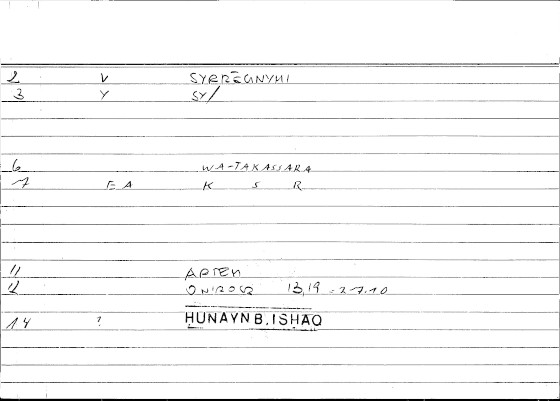 2 V SYRRĒGNYMI
3 Y SY/
6 WA-TAKASSARA
7 EA K S R
11 ARTEM
12 ONIROCR 13,19 - 27.10
14 ? HUNAYN B. ISHAQ